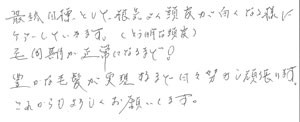 最終目標として、根元から頭皮が白くなる様に
ケアーしていきます。(とう明な頭皮)
毛周期が正常になるまで!
豊かな毛髪が実現するまで日々努力し頑張ります。
これからもよろしくお願いします。